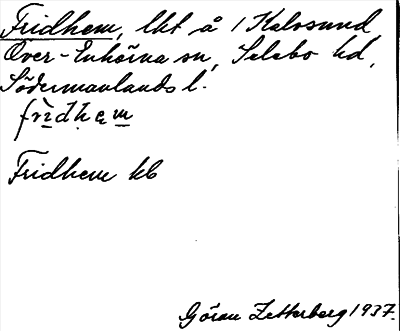 Fridhem, lht å 1 Kalvsund
Över-Enhörna sn, Selebo hd,
Södermanlands l.
frìdhem
Fridhem kb
Göran Zetterberg 1937.